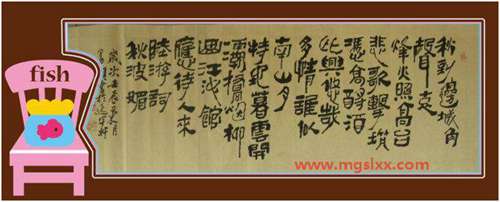 秋到邊城角
聲哀
烽火照高台
悲歌擊筑
憑高酹酒
此興悠哉
多情誰似
南山月
特地暮雲開
灞橋烟柳
曲江池館
應待人來
陸游詞
秋波媚
歲次壬辰
fish
www.mgslxx.com